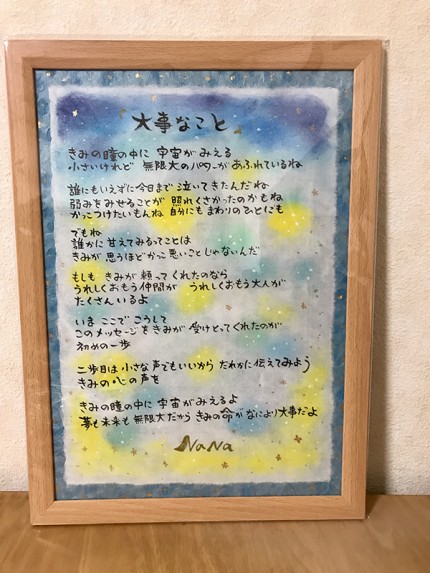 大事なこと
きみの瞳の中に 宇宙がみえる
小さいけれど 無限大のパワーが あふれているね
誰にもいえずに今日まで 泣いてきたんだね
弱みをみせることが 照れくさかったのかもね
かっこつけたいもんね 自分にも まわりのひとにも
でもね
誰かに 甘えてみるってことは
きみが 思うほどかっこ悪いことじゃないんだ
もしも きみが 頼ってくれたのなら
うれしくおもう仲間が うれしくおもう大人が
たくさんいるよ
いま ここで こうして
このメッセージをきみが 受けとってくれたのが
初めの一歩
二歩目は小さな声でもいいから だれかに伝えてみよう
きみの心の声を
きみの瞳の中に 宇宙がみえるよ
夢も未来も 無限大だから きみの命がなにより大事だよ
NaNa